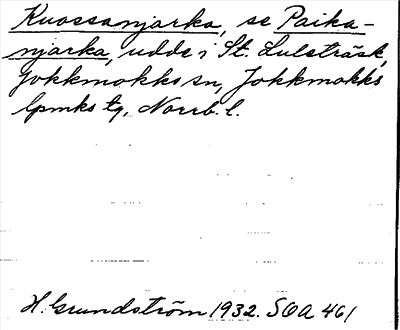 Kuossanjarka, se Paika-
njarka, udde i St. Lulsträsk,
Jokkmokks sn, Jokkmokks
lpmks tg, Norrb. l.
H. Grundström 1932. SOA 461